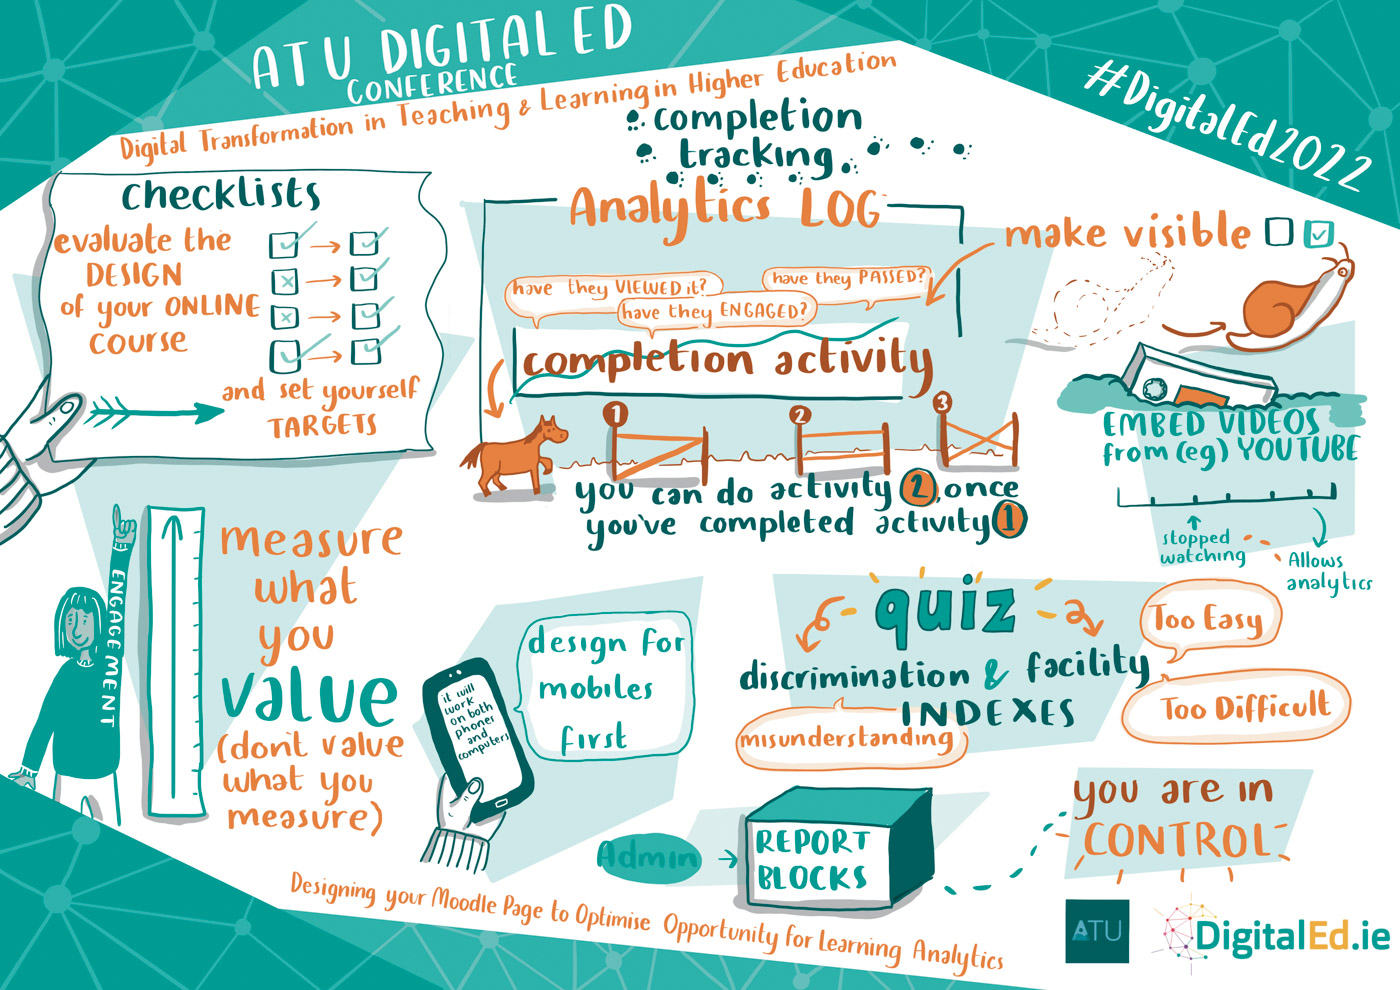 ATU DIGITAL ED
CONFERENCE
Digital Transformation in Teaching & Learning in Higher Education
#DigitalEd2022
checklists
evaluate the
DESIGN
of your ONLINE
course
and set yourself
TARGETS
completion
tracking
Analytics LOG
have they VIEWED it?
have they ENGAGED?
have they PASSED?
completion activity
1
2
3
you can do activity 2, once
you've completed activity 1
make visible
EMBED VIDEOS
from (eg) YOUTUBE
stopped
watching
Allows
analytics
ENGAGEMENT
measure
what
you
value
(don't value
what you
measure)
it will
work
on both
phones
and
computers
design for
mobiles
first
quiz
discrimination & facility
INDEXES
misunderstanding
Too Easy
Too Difficult
Admin
REPORT
BLOCKS
you are in
CONTROL
Designing your Moodle Page to Optimise Opportunity for Learning Analytics
ATU
DigitalEd.ie